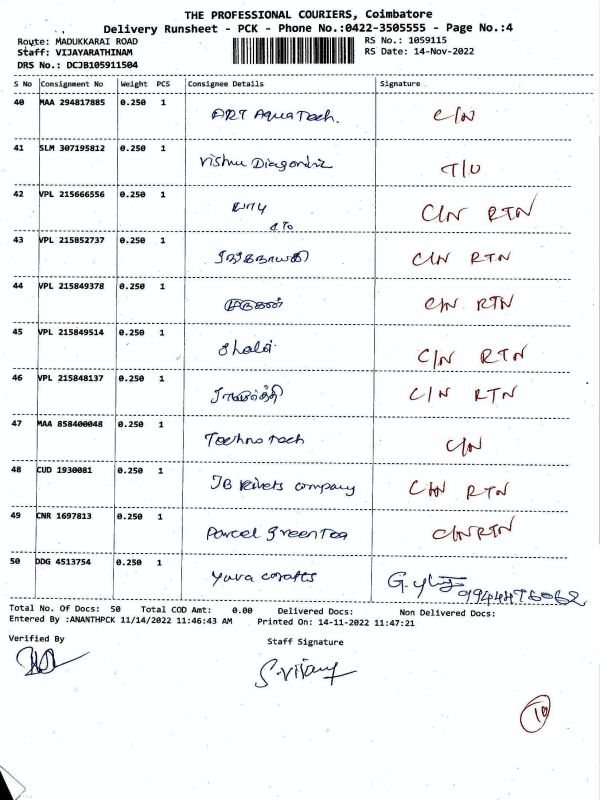 THE PROFESSIONAL COURIERS, Coimbatore
Delivery Runsheet - PCK - Phone No.:0422-3505555 - Page No.:4
Route: MADUKKARAI ROAD RS No.: 1059115
Staff: VIJAYARATHINAM RS Date: 14-Nov-2022
DRS No.: DCJB105911504
S No Consignment No Weight PCS Consignee Details Signature
40 MAA 294817885 0.250 1 ART AquaTech. C/N
41 SLM 307195812 0.250 1 Vishnu T/U
42 VPL 215666556 0.250 1 C/N RTN
43 VPL 215852737 0.250 1 C/N RTN
44 VPL 215849378 0.250 1 முருகன் C/N RTN
45 VPL 215849514 0.250 1 C/N RTN
46 VPL 215848137 0.250 1 C/N RTN
47 MAA 858400048 0.250 1 Techno Tech C/N
48 CUD 1930081 0.250 1 JB Rivets company C/N RTN
49 CNR 1697813 0.250 1 Parcel Green Tea C/N RTN
50 DDG 4513754 0.250 1 Yuva crafts
Total No. Of Docs: 50 Total COD Amt: 0.00 Delivered Docs: Non Delivered Docs:
Entered By :ANANTHPCK 11/14/2022 11:46:43 AM Printed On: 14-11-2022 11:47:21
Verified By Staff Signature
S.Vijay
10